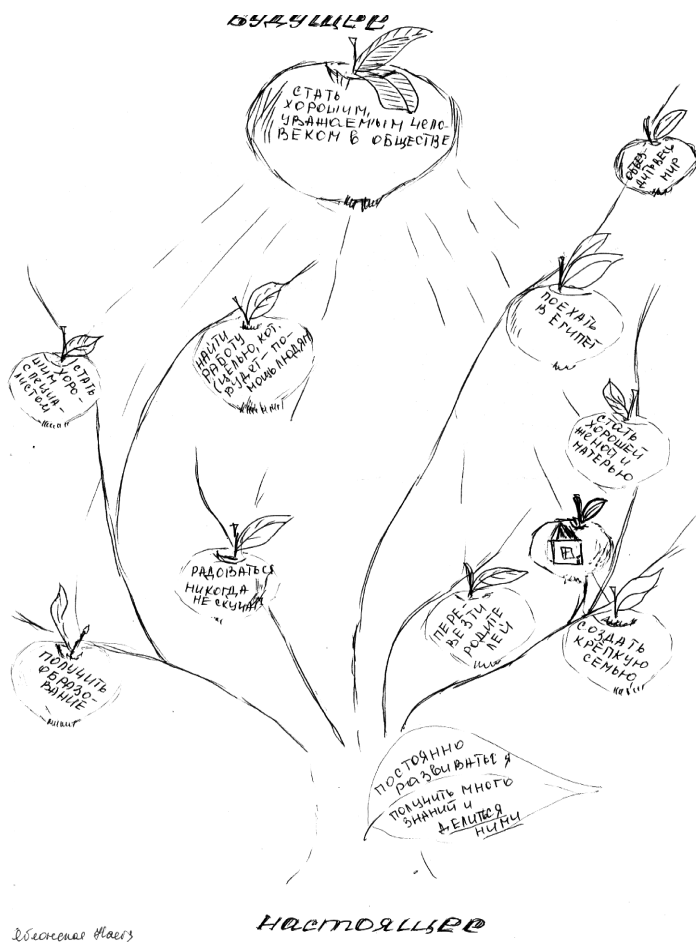 БУДУЩЕЕ
СТАТЬ
ХОРОШИМ,
УВАЖАЕМЫМ ЧЕЛО-
ВЕКОМ В ОБЩЕСТВЕ
ОБЪЕЗ-
ДИТЬ ВЕСЬ
МИР
ПОЕХАТЬ
В ЕГИПЕТ
НАЙТИ
РАБОТУ
(ЦЕЛЬЮ, КОТ.
БУДЕТ – ПО-
МОЩЬ ЛЮДЯМ)
СТАТЬ
ХОРО-
ШИМ
СПЕЦИА-
ЛИСТОМ
СТАТЬ
ХОРОШЕЙ
ЖЕНОЙ И
МАТЕРЬЮ
РАДОВАТЬСЯ
НИКОГДА
НЕ СКУЧАТЬ
ПЕРЕ-
ВЕЗТИ
РОДИТЕ
ЛЕЙ
СОЗДАТЬ
КРЕПКУЮ
СЕМЬЮ
ПОЛУЧИТЬ
ОБРАЗО-
ВАНИЕ
ПОСТОЯННО
РАЗВИВАТЬСЯ
ПОЛУЧИТЬ МНОГО
ЗНАНИЙ И
ДЕЛИТЬСЯ
НИМИ
НАСТОЯЩЕЕ
Яблонская